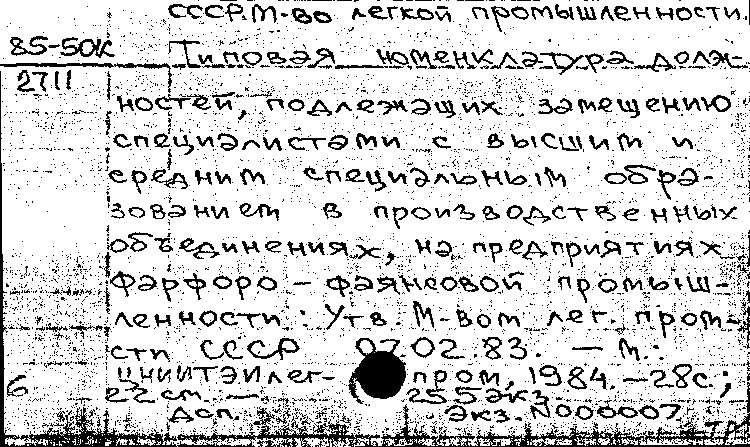 СССР. М-во легкой промышленности.
85-50к
Типовая номенклатура долж-
2711
ностей, подлежащих замещению
специалистами с высшим и
средним специальным обра-
зованием в производственных
объединениях, на предприятиях
фарфоро-фаянсовой промыш-
ленности: Утв. М-вом лег. пром-
сти СССР 07.02.83. — М.:
ЦНИИТЭИлег- пром, 1984. — 28с.;
6
22 см. — 255экз
Дсп. Экз. N000007